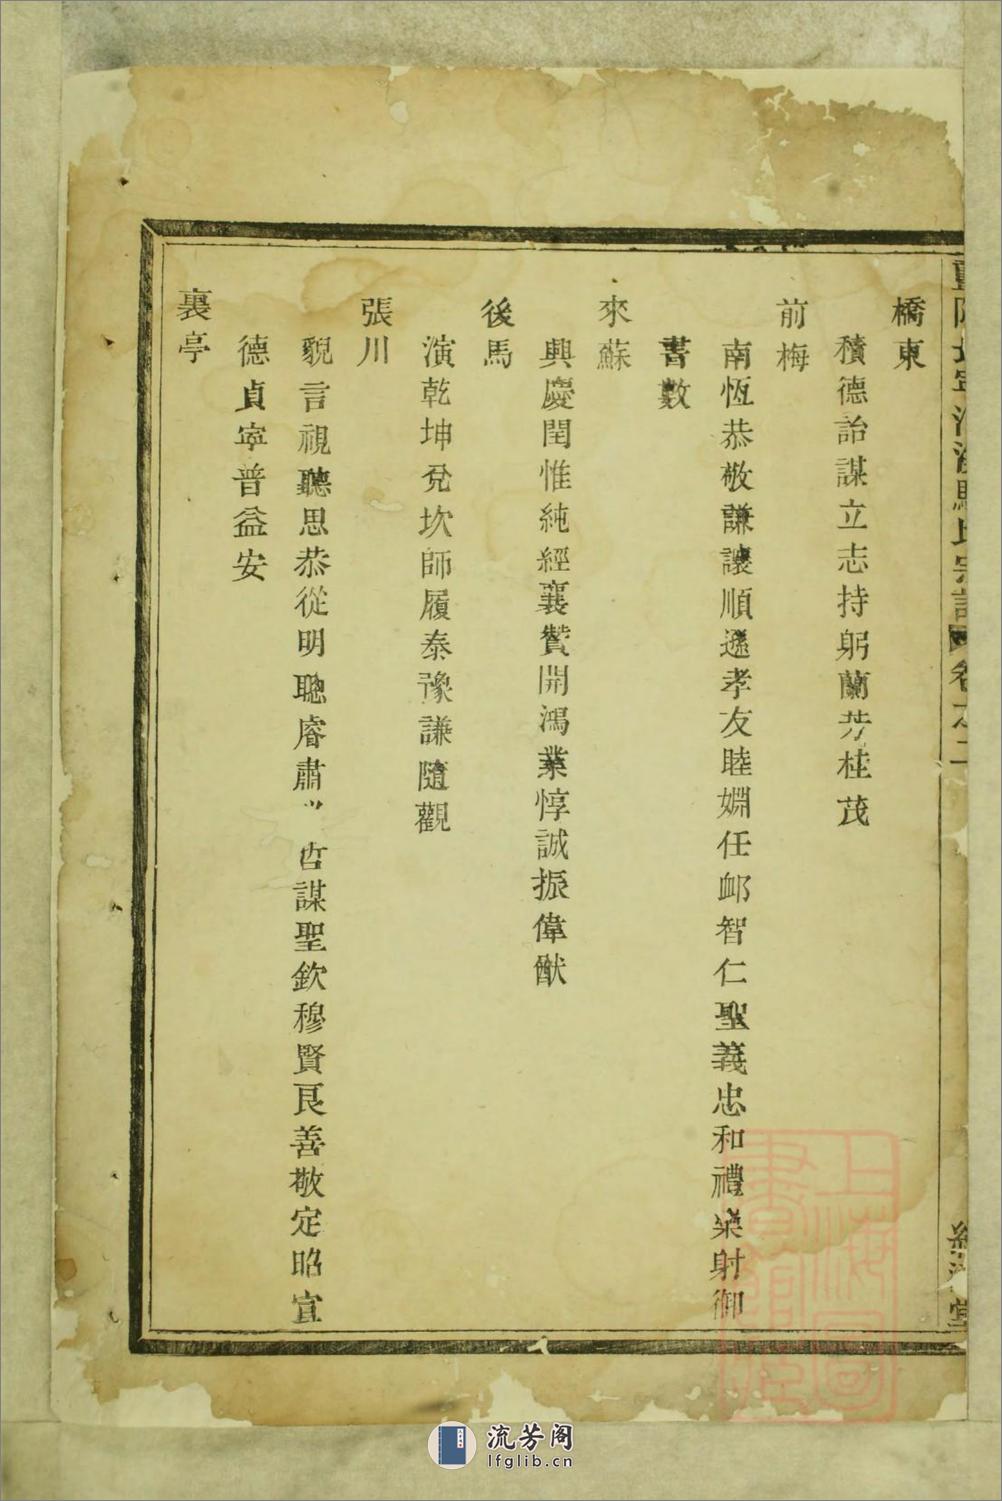 橋東
積德詒謀立志持躬蘭芳桂茂
前梅
南恆恭敬謙讓順遜孝友睦婣任䘏智仁聖義忠和禮樂射御
書數
來蘇
興慶閏惟純經襄贊開鴻業惇誠振偉猷
後馬
演乾坤兌坎師履泰豫謙隨觀
張川
貌言視聽思恭從明聰睿肅乂哲謀聖欽穆賢良善敬定昭宣
德貞寧普益安
裏亭
氏宗譜 卷之二
堂
上海圖書館藏
流芳阁
lfglib.cn